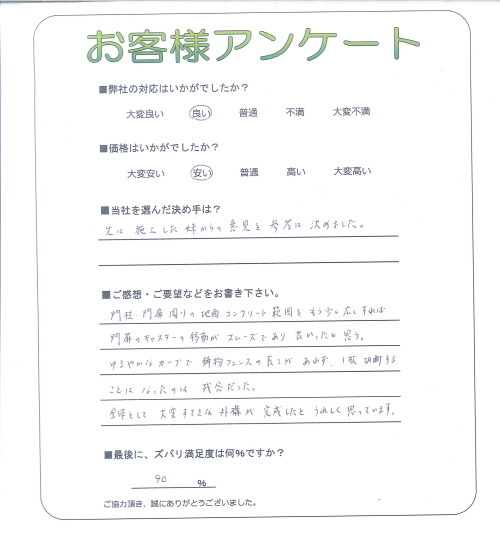 お客様アンケート
■弊社の対応はいかがでしたか？
大変良い 良い 普通 不満 大変不満
■価格はいかがでしたか？
大変安い 安い 普通 高い 大変高い
■当社を選んだ決め手は？
先に施工した妹からの意見を参考に決めました。
■ご感想・ご要望などをお書き下さい。
門柱・門扉周りの地面コンクリート範囲をもう少し広くすれば
門扉のキャスターの移動がスムーズであり良かったと思う。
ゆるやかなカーブで鋳物フェンスの長さがあわず、1枚切断する
ことになったのは残念だった。
全体として大変すてきな外構が完成したとうれしく思っています。
■最後に、ズバリ満足度は何%ですか？
90 %
ご協力頂き、誠にありがとうございました。